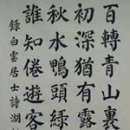 百轉青山裏
初深猶有
秋水鴨頭綠
誰知倦遊客
錄白雲居士詩湖